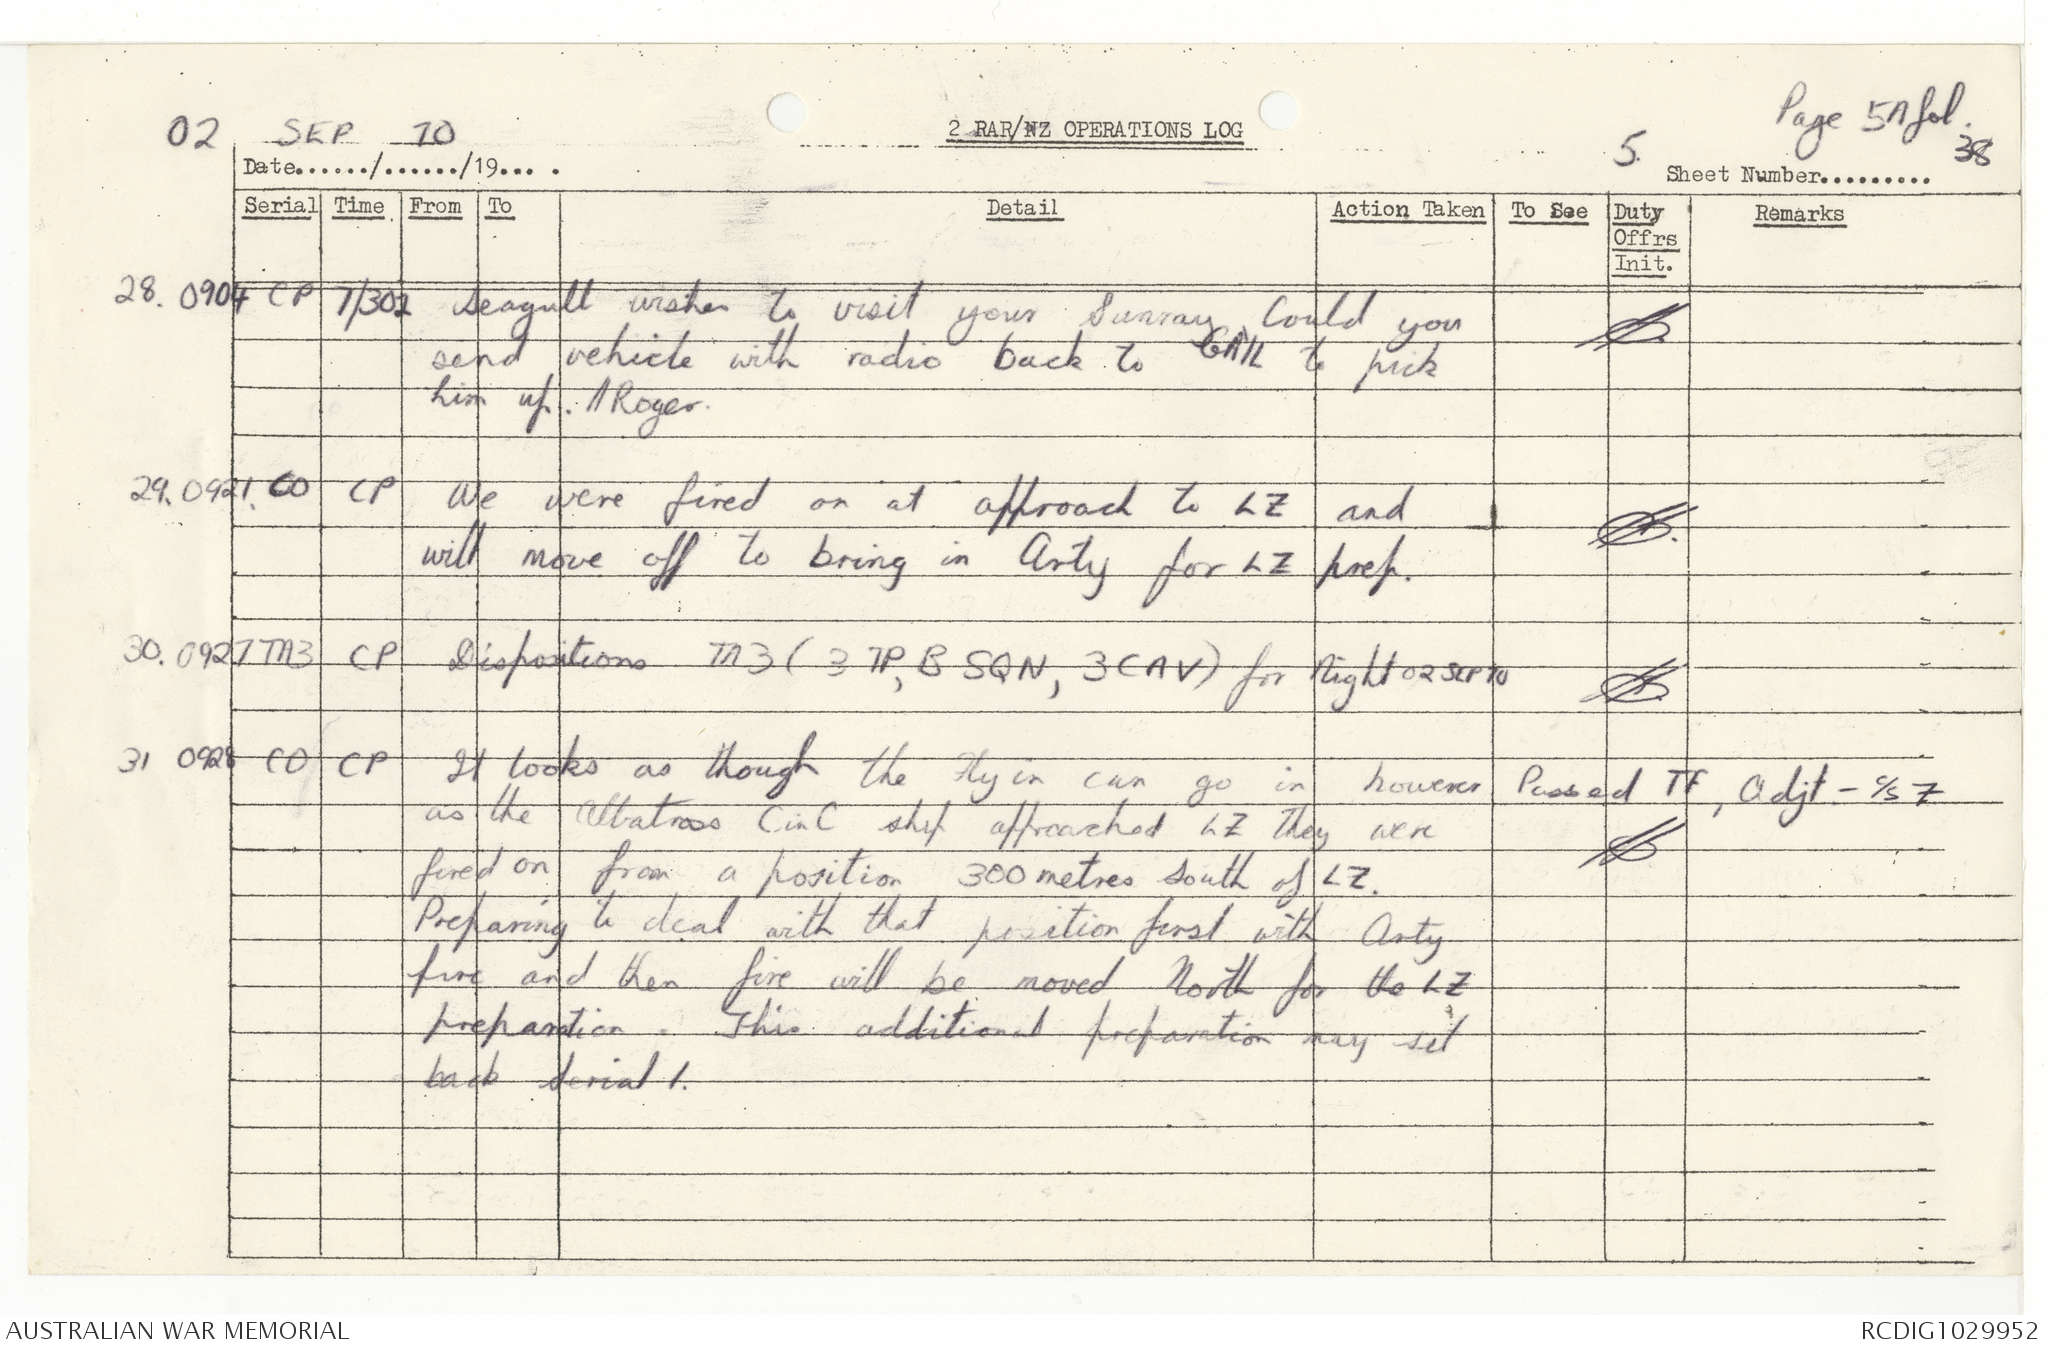 Page 5A fol.
38
02 SEP 70
2 RAR/NZ OPERATIONS LOG
5.
Date....../....../19... .
Sheet Number.........
Serial Time From To Detail Action Taken To See Duty Offrs Init. Remarks
28. 0904 CP 7/302 Seagull wishes to visit your Sunray. Could you
send vehicle with radio back to to pick
him up. A Roger.
29. 0921. CO CP We were fired on at approach to LZ and
will move off to bring in Arty for LZ prep.
30. 0927 TA3 CP Dispositions TA3 (3 TP, B SQN, 3 CAV) for Night 02 SEP 70
31 0928 CO CP It looks as though the Fly in can go in however Passed TF, Adjt - c/s 7
as the Albatross CinC ship approached LZ they were
fired on from a position 300 metres South of LZ.
Preparing to deal with that position first with Arty
fire and then fire will be moved North for the LZ
preparation. This additional preparation may set
back serial 1.
AUSTRALIAN WAR MEMORIAL
RCDIG1029952